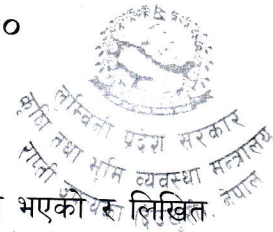 ०
लुम्बिनी प्रदेश सरकार
कृषि तथा भूमि व्यवस्था मन्त्रालय
राप्ती नेपाल
भएको र लिखित